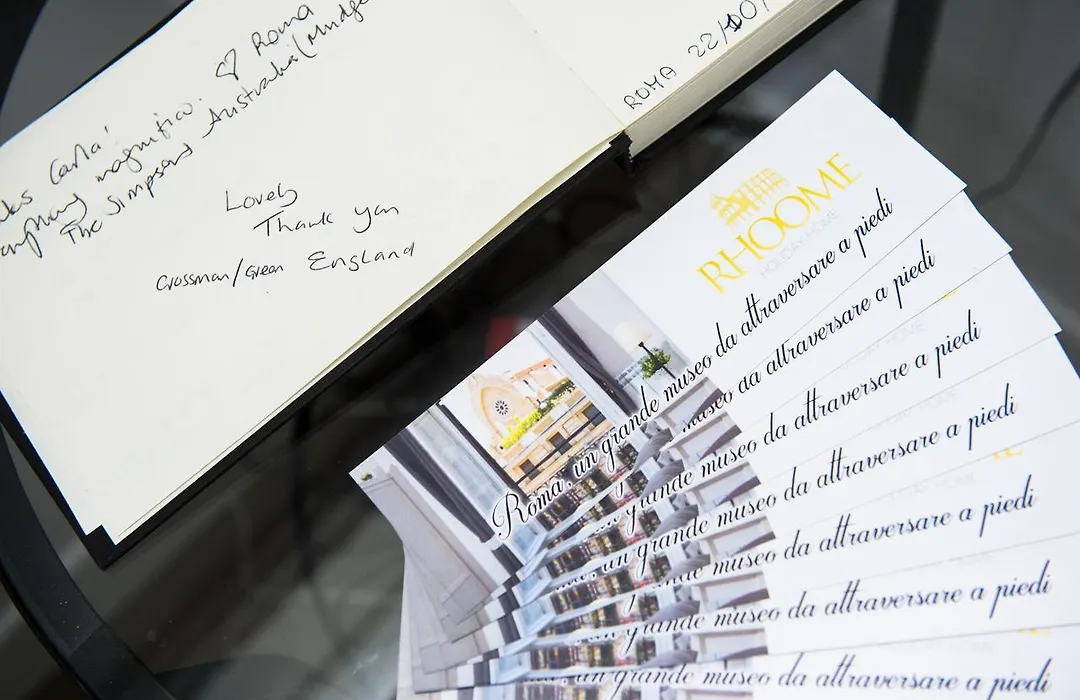 Carla!
magnifico. Roma
The Simpsons Australia (Mudge
Lovely
Thank you
Crossman/Green England
ROMA 22/10/
RHOOME
HOLIDAY HOME
Roma, un grande museo da attraversare a piedi
museo da attraversare a piedi
grande museo da attraversare a piedi
un grande museo da attraversare a piedi
museo da attraversare a piedi
grande museo da attraversare a piedi
un grande museo da attraversare a piedi